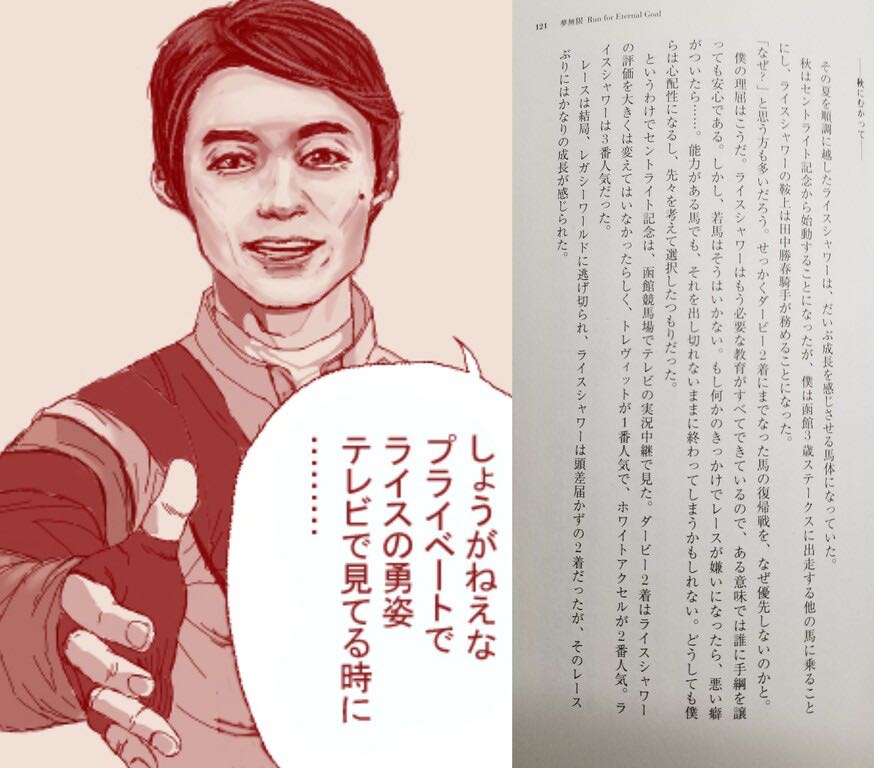 しょうがねえな
プライベートで
ライスの勇姿
テレビで見てる時に
………
121 夢無限 Run for Eternal Goal
――秋にむかって――
その夏を順調に越したライスシャワーは、だいぶ成長を感じさせる馬体になっていた。
秋はセントライト記念から始動することになったが、僕は函館3歳ステークスに出走する他の馬に乗ること
にし、ライスシャワーの鞍上は田中勝春騎手が務めることになった。
「なぜ?」と思う方も多いだろう。せっかくダービー2着にまでなった馬の復帰戦を、なぜ優先しないのかと。
僕の理屈はこうだ。ライスシャワーはもう必要な教育がすべてできているので、ある意味では誰に手綱を譲
っても安心である。しかし、若馬はそうはいかない。もし何かのきっかけでレースが嫌いになったら、悪い癖
がついたら……。能力がある馬でも、それを出し切れないままに終わってしまうかもしれない。どうしても僕
らは心配性になるし、先々を考えて選択したつもりだった。
というわけでセントライト記念は、函館競馬場でテレビの実況中継で見た。ダービー2着はライスシャワー
の評価を大きくは変えてはいなかったらしく、トレヴィットが1番人気で、ホワイトアクセルが2番人気。ラ
イスシャワーは3番人気だった。
レースは結局、レガシーワールドに逃げ切られ、ライスシャワーは頭差届かずの2着だったが、そのレース
ぶりにはかなりの成長が感じられた。